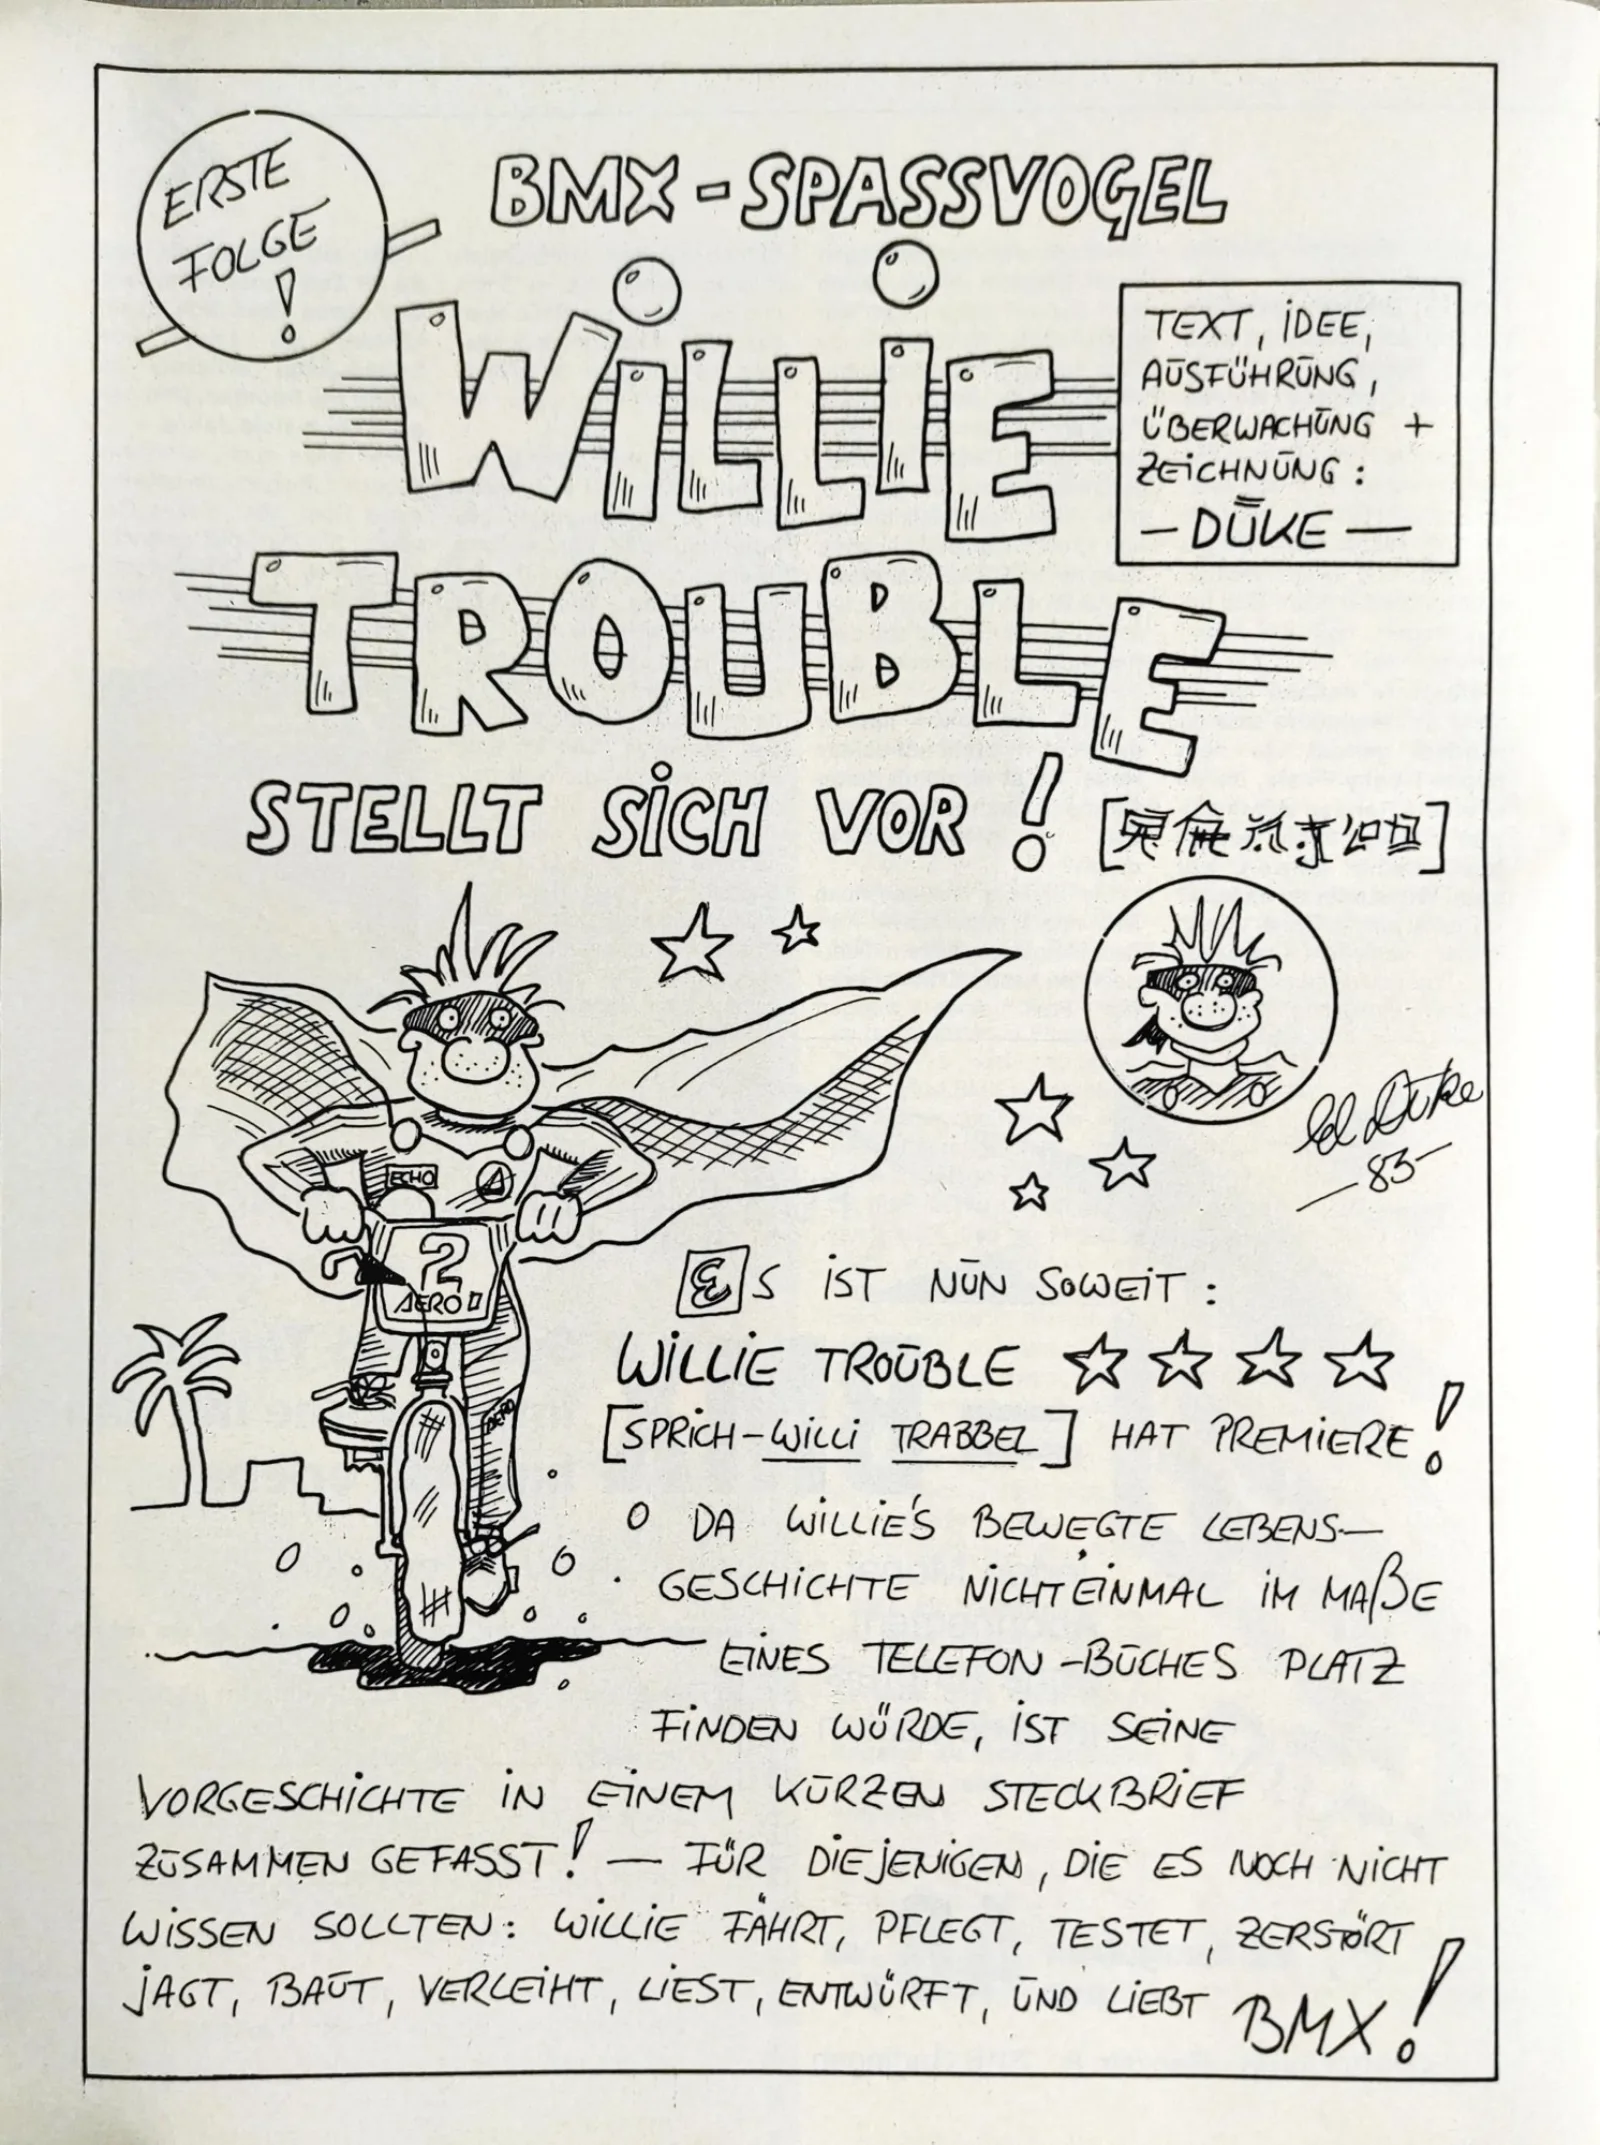 ERSTE
FOLGE
!
BMX-SPASSVOGEL
WILLIE
TROUBLE
STELLT SICH VOR!
TEXT, IDEE,
AUSFÜHRUNG,
ÜBERWACHUNG +
ZEICHNUNG:
— DUKE —
Duke
—83—
ECHO
A
2
AERO
AERO
ES IST NUN SOWEIT:
WILLIE TROUBLE ☆ ☆ ☆ ☆
[SPRICH-WILLI TRABBEL] HAT PREMIERE!
DA WILLIE'S BEWEGTE LEBENS-
GESCHICHTE NICHTEINMAL IM MAßE
EINES TELEFON-BUCHES PLATZ
FINDEN WÜRDE, IST SEINE
VORGESCHICHTE IN EINEM KURZEN STECKBRIEF
ZUSAMMEN GEFASST! — FÜR DIEJENIGEN, DIE ES NOCH NICHT
WISSEN SOLLTEN: WILLIE FÄHRT, PFLEGT, TESTET, ZERSTÖRT
JAGT, BAUT, VERLEIHT, LIEST, ENTWÜRFT, UND LIEBT BMX!